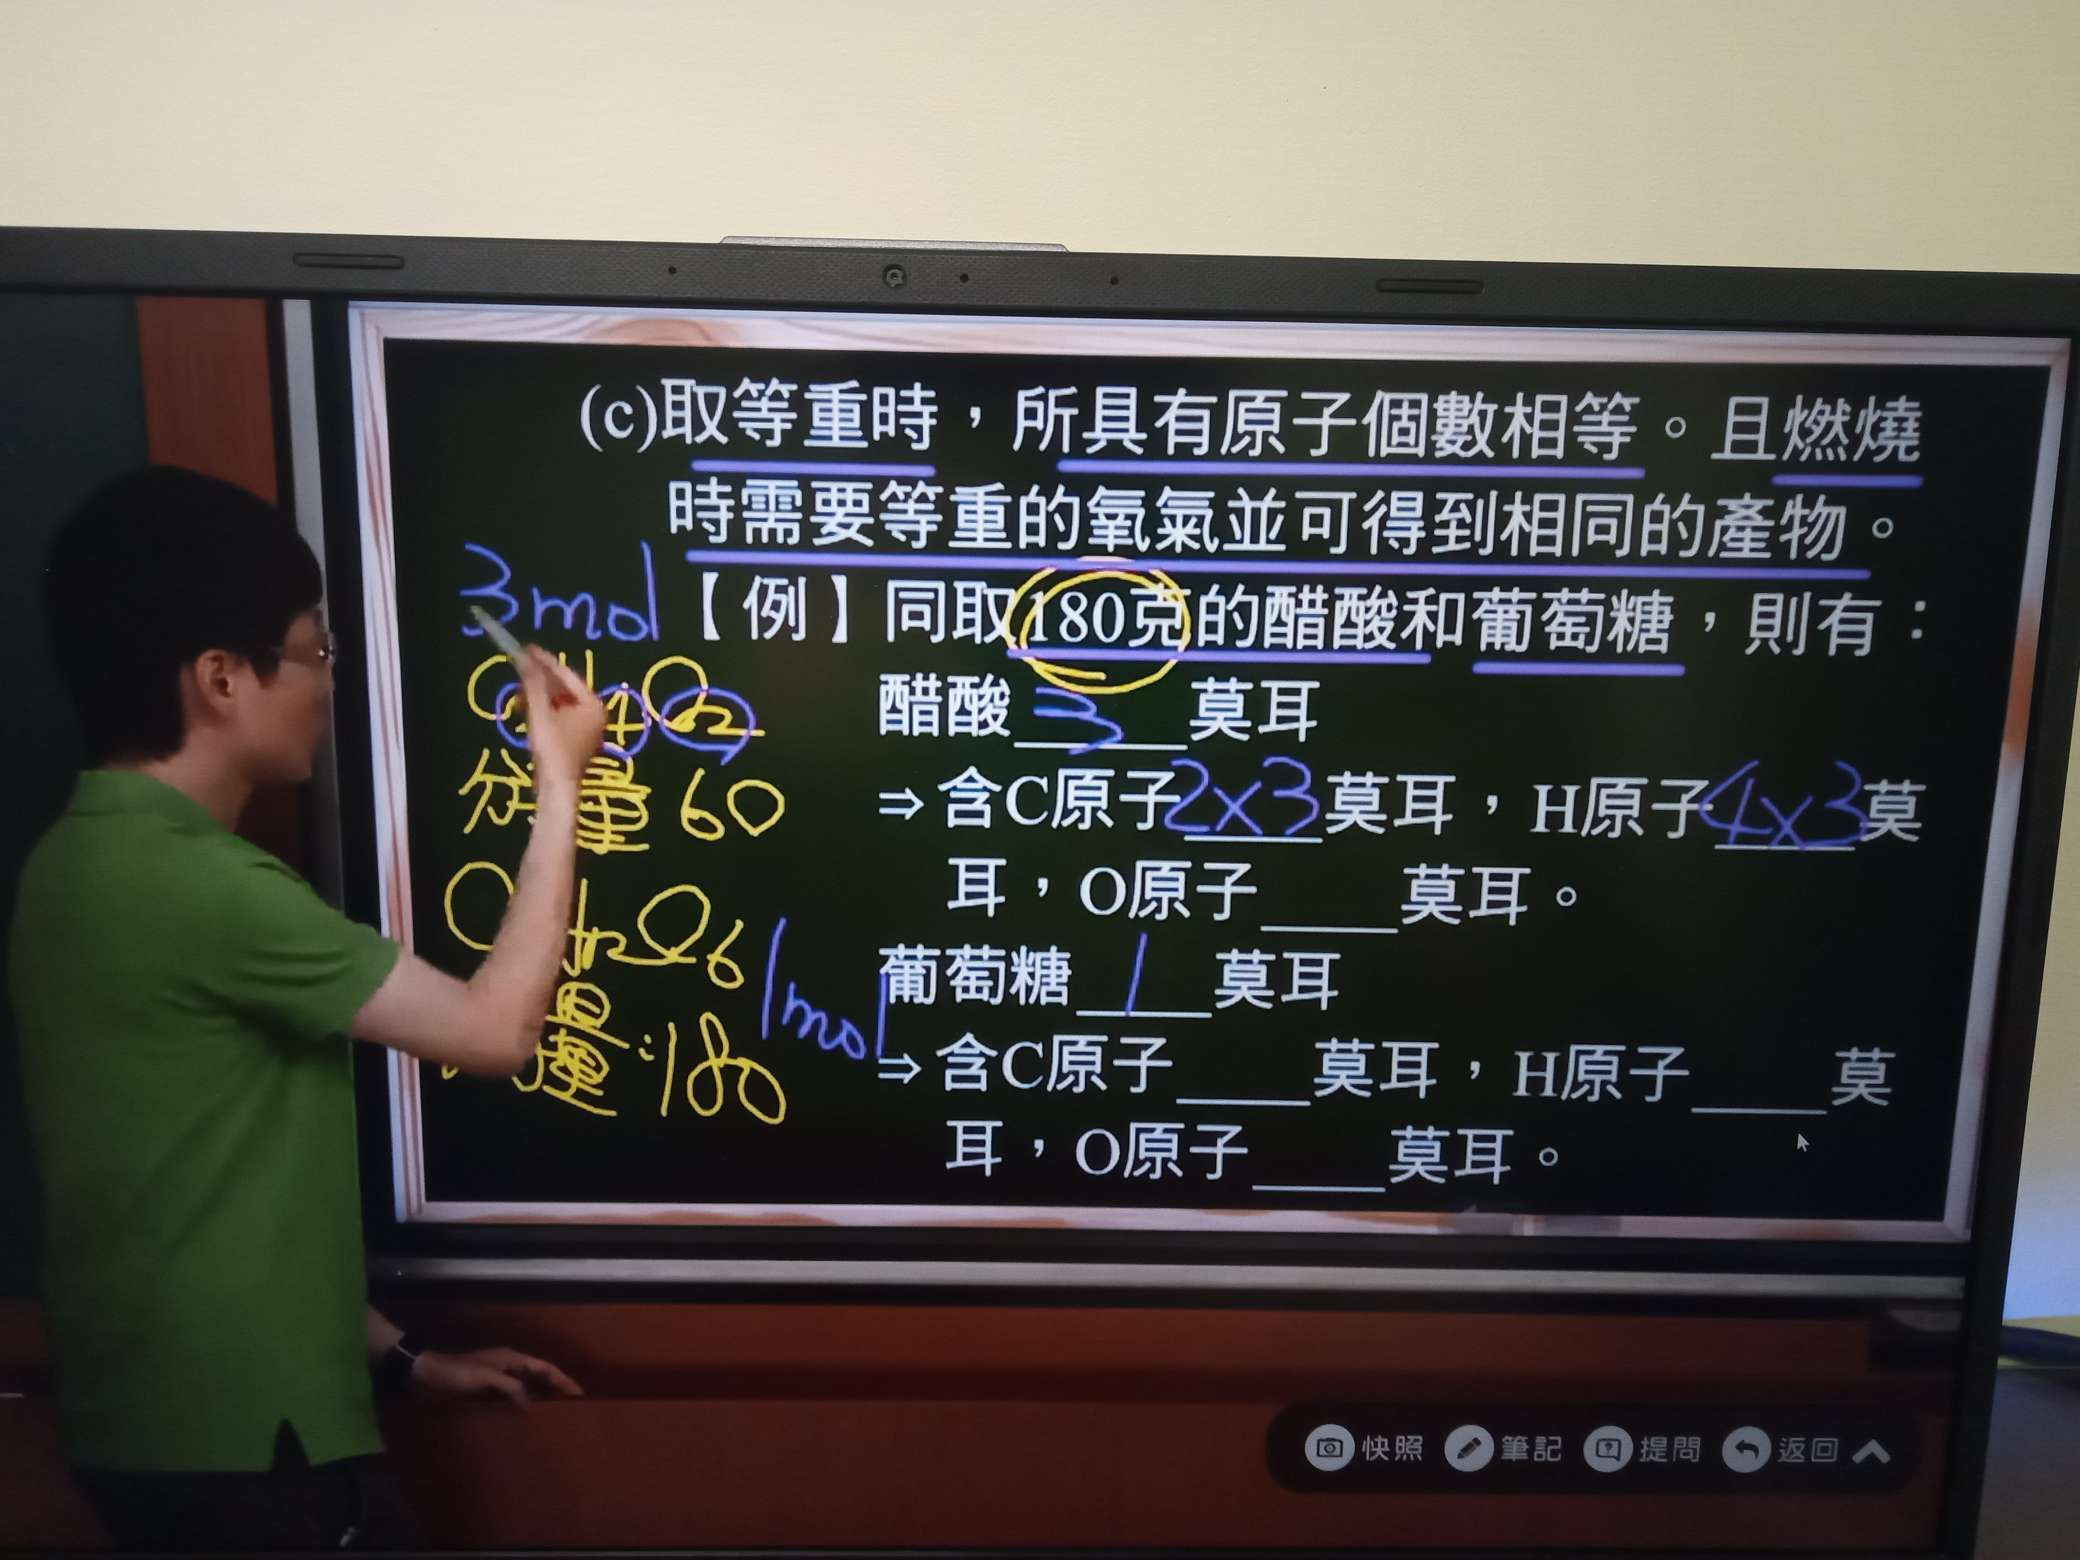 (c)取等重時，所具有原子個數相等。且燃燒
時需要等重的氧氣並可得到相同的產物。
3mol【例】同取180克的醋酸和葡萄糖，則有：
醋酸 3 莫耳
分 量 60
⇒含C原子2×3莫耳，H原子4×3莫
耳，O原子____莫耳。
葡萄糖 1 莫耳
1mol
量:180
⇒含C原子____莫耳，H原子____莫
耳，O原子____莫耳。
快照 筆記 提問 返回